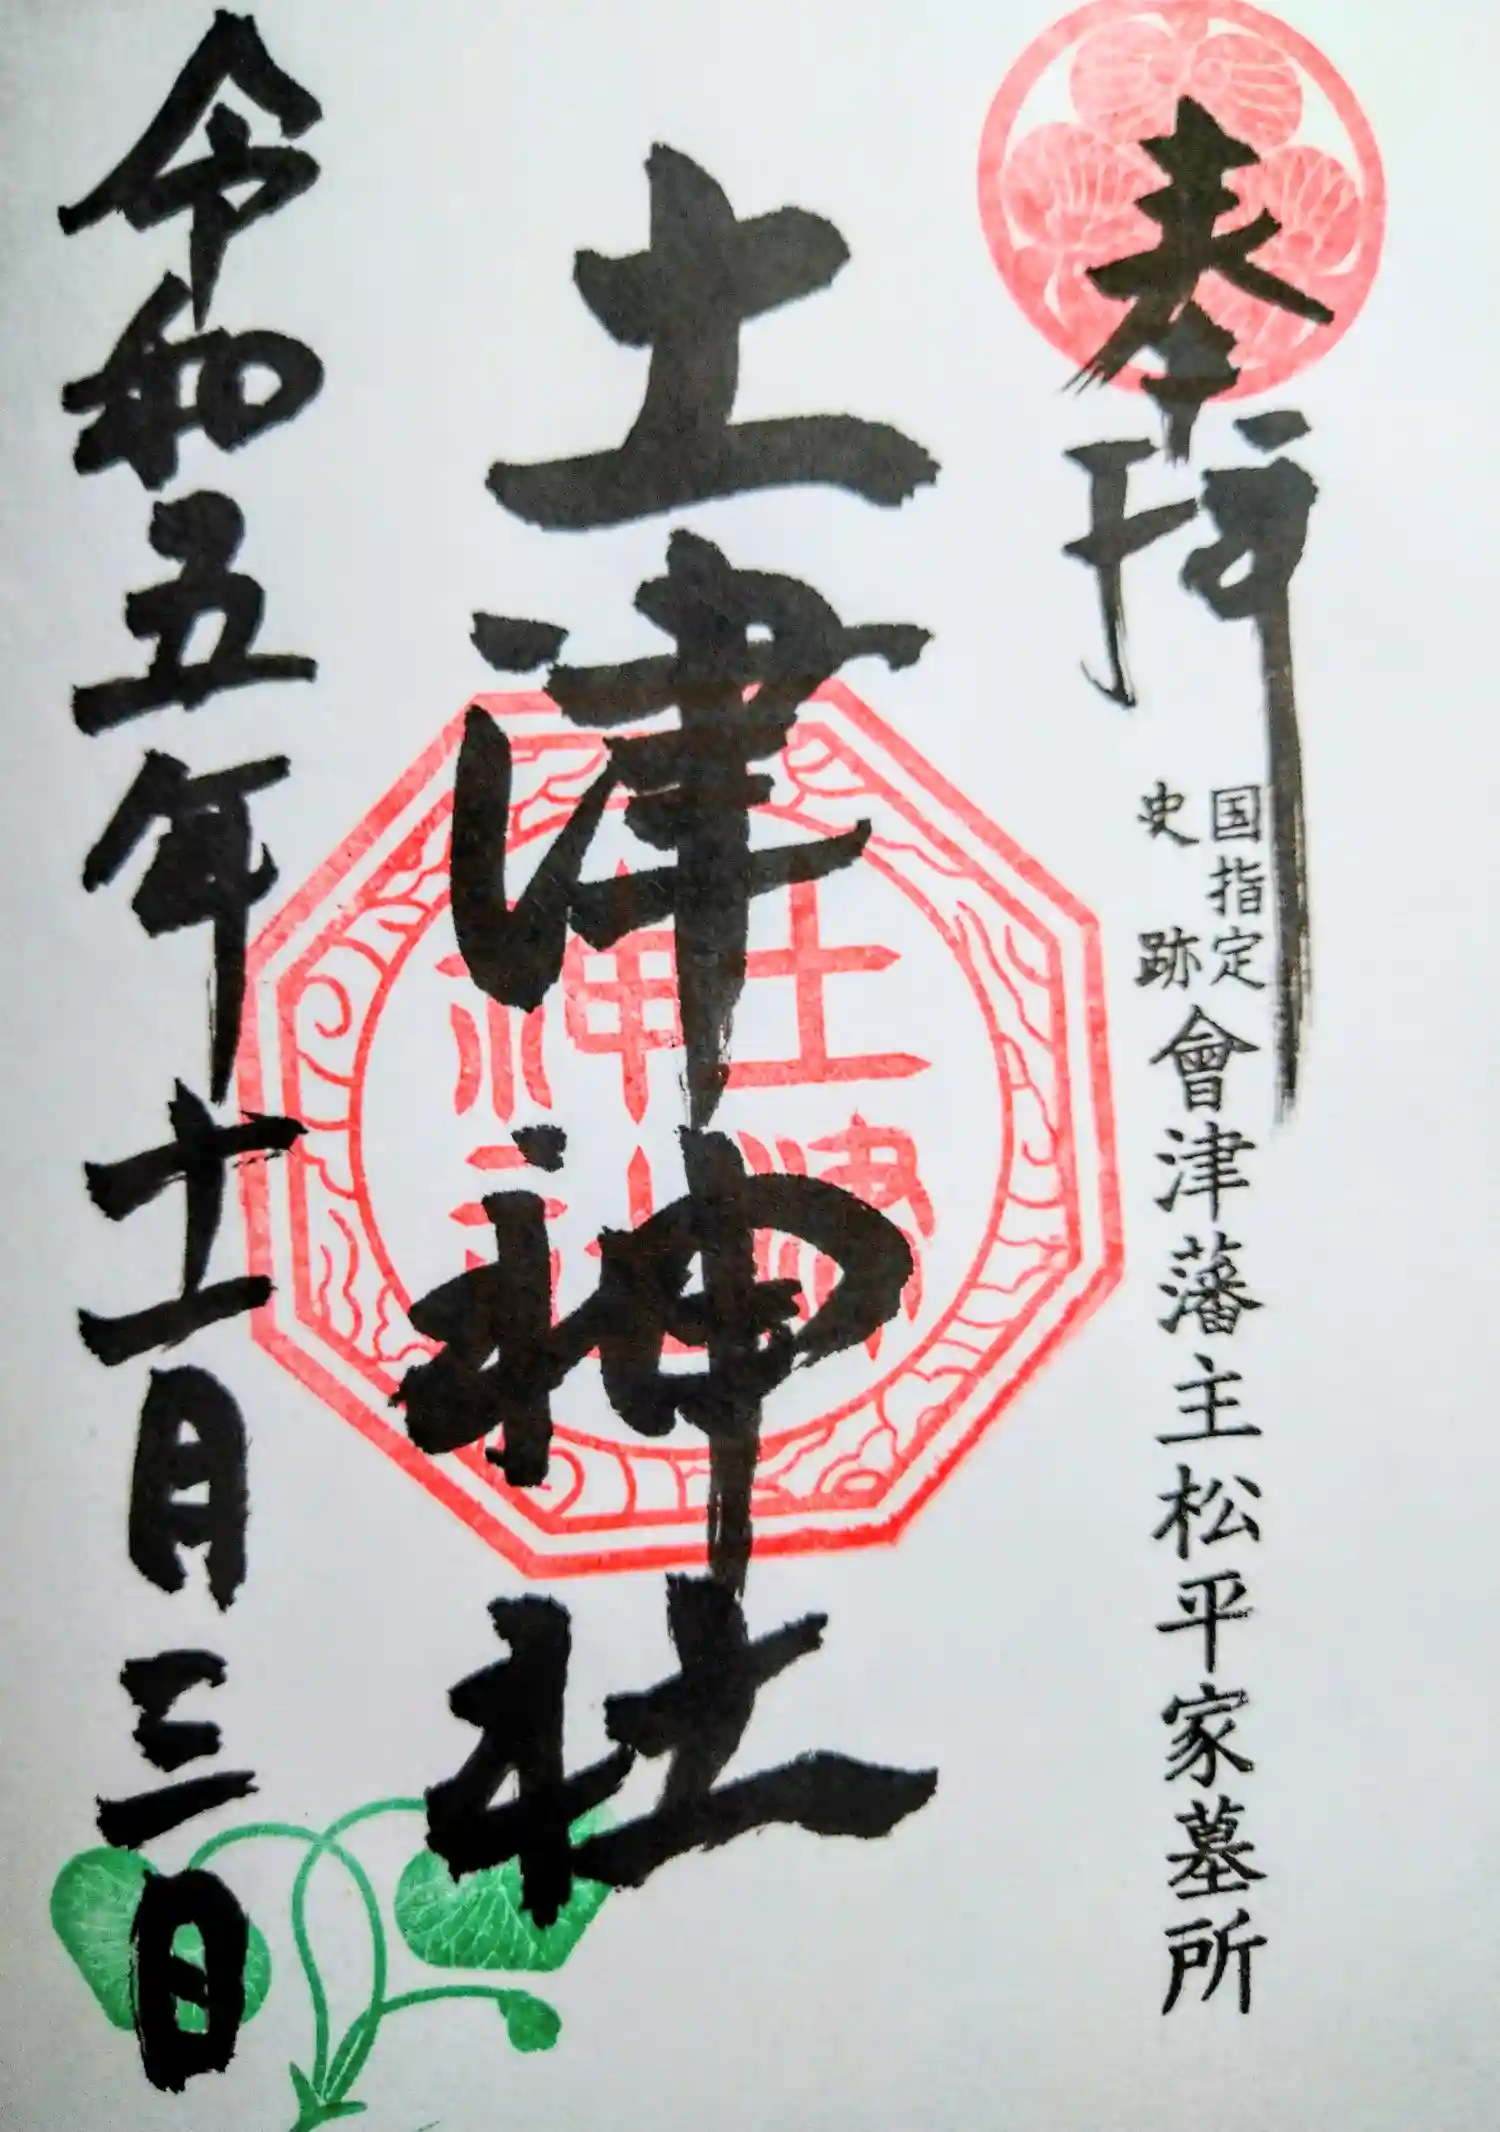 奉拝
国指定
史跡
會津藩主松平家墓所
土津神社
土津
神社
令和五年十一月三日